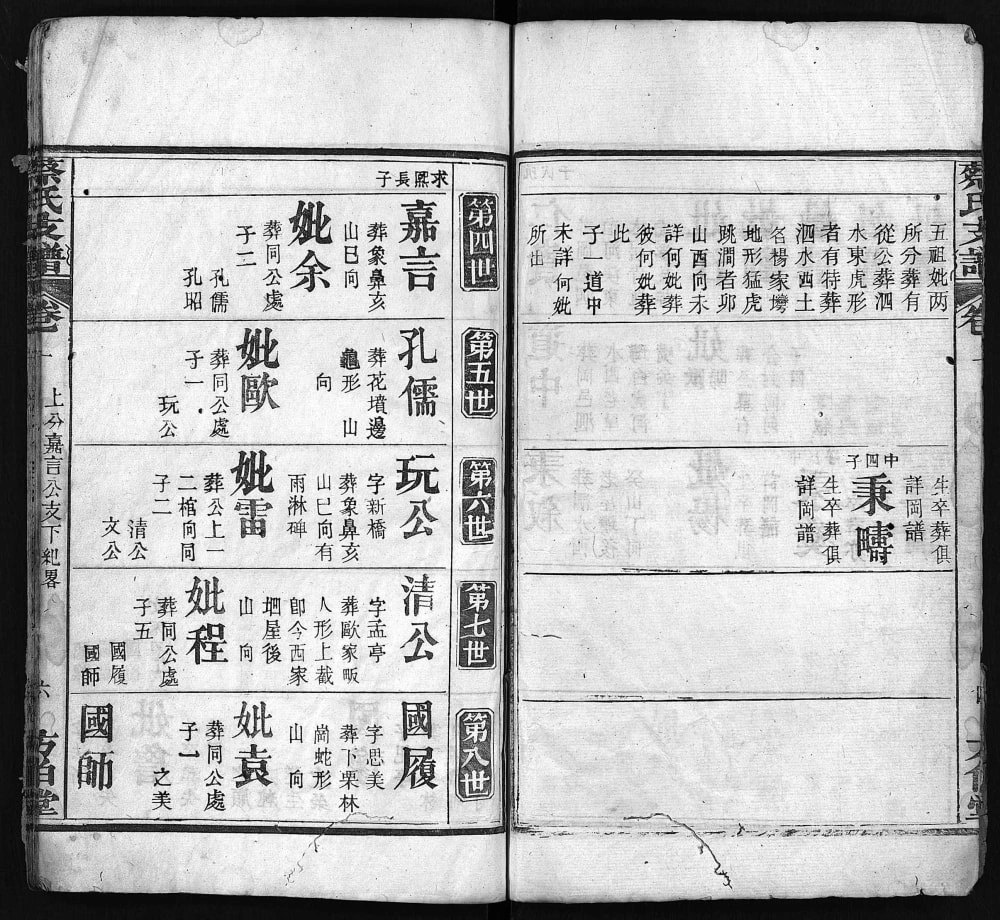 五祖妣两
所分葬有
從公葬泗
水東虎形
者有特葬
泗水西土
名楊家塆
地形猛虎
跳澗者卯
山酉向未
詳何妣葬
彼何妣葬
此
子一道中
未詳何妣
所出
生卒葬俱
詳岡譜
中四子
秉疇
生卒葬俱
詳岡譜
第四世
第五世
第六世
第七世
第八世
求熈長子
嘉言
葬象鼻亥
山巳向
妣余
葬同公處
子三
孔儒
孔昭
孔儒
葬花墳邊
龜形 山
向
妣歐
葬同公處
子一
玩公
玩公
字新橋
葬象鼻亥
山巳向有
雨淋碑
妣雷
葬公上一
二棺向同
子二
清公
文公
清公
字孟亭
葬歐家畈
人形上截
卽今西家
垇屋後
山 向
妣程
葬同公處
子五
國履
國師
國履
字思美
葬下栗林
崗蛇形
山 向
妣袁
葬同公處
子一
之美
國師
蔡氏支譜
卷一
上分嘉言公支下紀畧
六